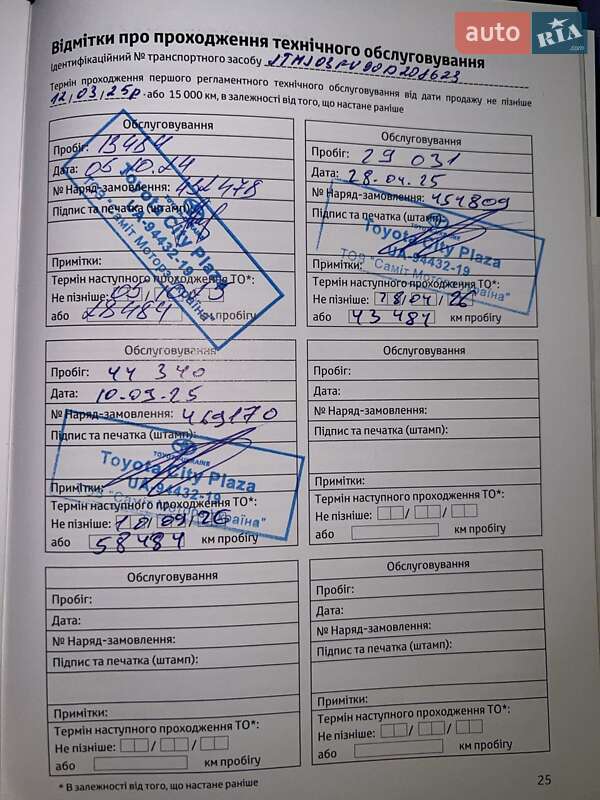 auto RIA .com
Відмітки про проходження технічного обслуговування
Ідентифікаційний № транспортного засобу
Термін проходження першого регламентного технічного обслуговування від дати продажу не пізніше
12/03/25р. або 15 000 км, в залежності від того, що настане раніше
Обслуговування
Пробіг: 13484
Дата: 05.10.24
№ Наряд-замовлення: 432478
Підпис та печатка (штамп):
Toyota City Plaza
UA-94432-19
ТОВ "Саміт Моторз Україна"
Примітки:
Термін наступного проходження ТО*:
Не пізніше: 05/10/25
або 28484 км пробігу
Обслуговування
Пробіг: 29 031
Дата: 28.04.25
№ Наряд-замовлення: 454809
Підпис та печатка (штамп):
Toyota City Plaza
UA-94432-19
ТОВ "Саміт Моторз Україна"
Примітки:
Термін наступного проходження ТО*:
Не пізніше: 28/04/26
або 43484 км пробігу
Обслуговування
Пробіг: 44 340
Дата: 10.09.25
№ Наряд-замовлення: 469170
Підпис та печатка (штамп):
TOYOTA UKRAINE
Toyota City Plaza
UA-94432-19
ТОВ "Саміт Моторз Україна"
Примітки:
Термін наступного проходження ТО*:
Не пізніше: 10/09/26
або 58484 км пробігу
Обслуговування
Пробіг:
Дата:
№ Наряд-замовлення:
Підпис та печатка (штамп):
Примітки:
Термін наступного проходження ТО*:
Не пізніше: / /
або км пробігу
Обслуговування
Пробіг:
Дата:
№ Наряд-замовлення:
Підпис та печатка (штамп):
Примітки:
Термін наступного проходження ТО*:
Не пізніше: / /
або км пробігу
Обслуговування
Пробіг:
Дата:
№ Наряд-замовлення:
Підпис та печатка (штамп):
Примітки:
Термін наступного проходження ТО*:
Не пізніше: / /
або км пробігу
* В залежності від того, що настане раніше
25